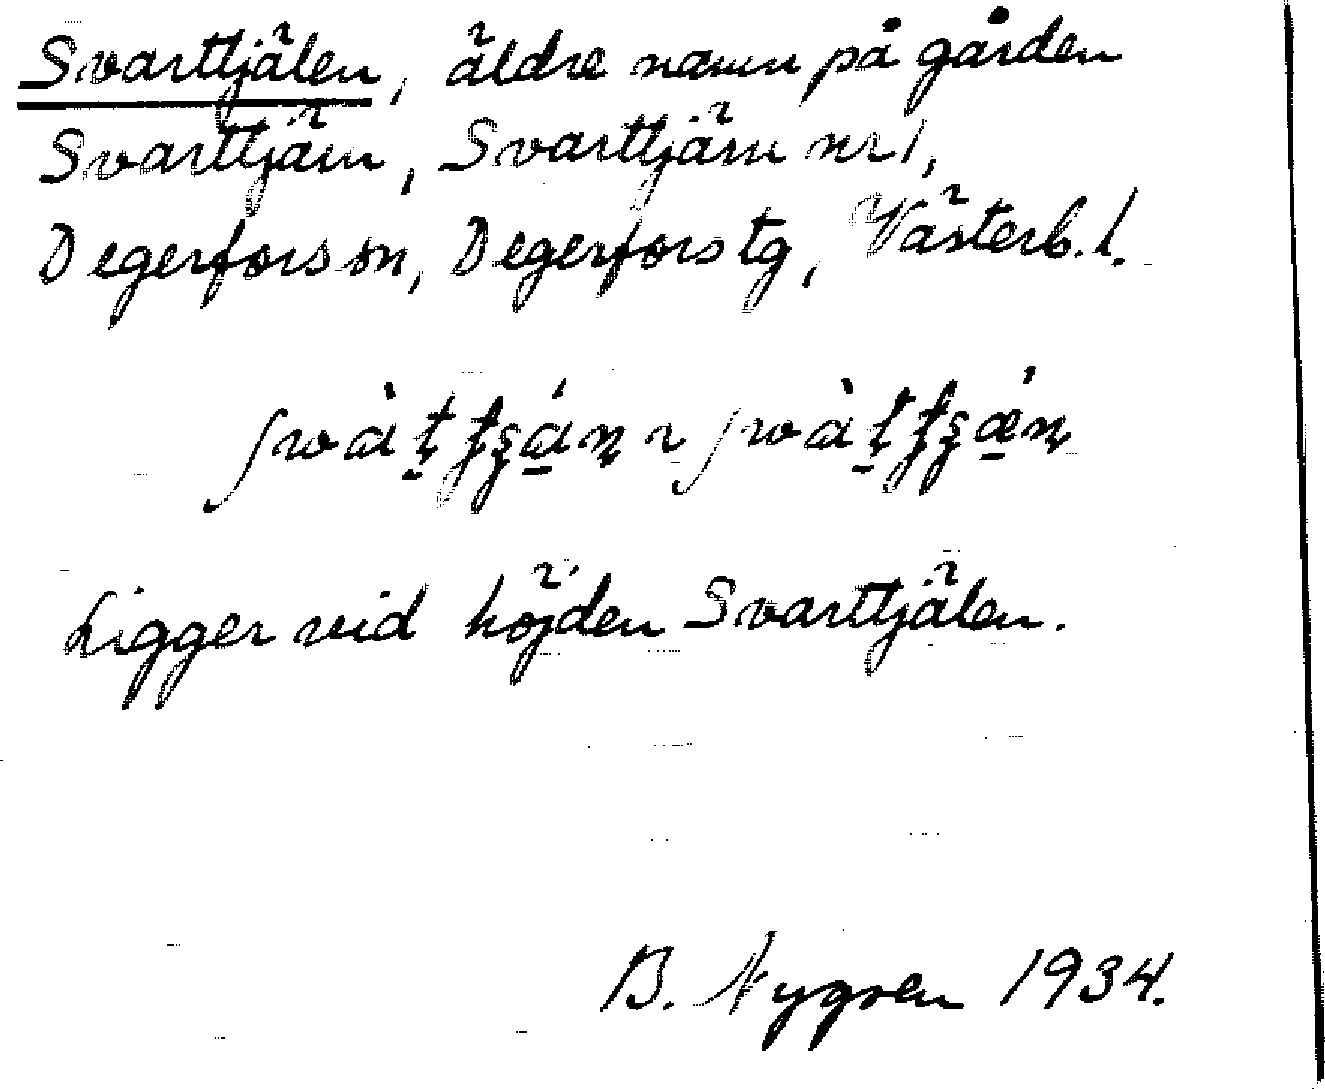 Svarttjälen, äldre namn på gården
Svarttjärn, Svarttjärn nr 1,
Degerfors sn, Degerfors tg, Västerb. l.
Ligger vid höjden Svarttjälen.
B. Nygren 1934.